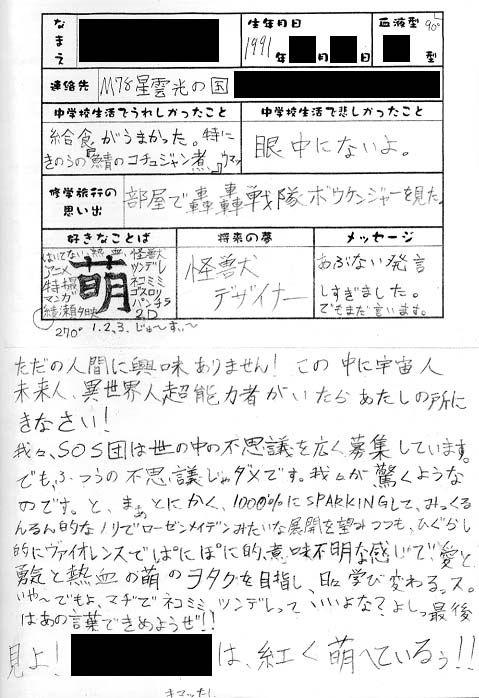 なまえ
生年月日
1991年 月 日
血液型 90°
型
連絡先
M78星雲光の国
中学校生活でうれしかったこと
給食がうまかった。特に
きのうの『鯖のコチュジャン煮』ウマッ
中学校生活で悲しかったこと
眼中にないよ。
修学旅行の
思い出
部屋で轟轟戦隊ボウケンジャーを見た。
好きなことば
はいてない 熱血 怪獣
アニメ
特撮
マンガ
綾瀬夕映
萌
ツンデレ
ネコミミ
ゴスロリ
パンチラ
2D
270° 1.2.3.じゅ〜すぃ〜
将来の夢
怪獣
デザイナー
メッセージ
あぶない発言
しすぎました。
でもまだ言います。
ただの人間に興味ありません!この中に宇宙人
未来人、異世界人超能力者がいたらあたしの所に
きなさい!
我々、SOS団は世の中の不思議を広く募集しています。
でも、ふつうの不思議じゃダメです。我々が驚くような
のです。と、まぁとにかく、1000%にSPARKINGして、みっくる
んるん的なノリでローゼンメイデンみたいな展開を望みつつも、ひぐらし
的にヴァイオレンスでぱにぽに的意味不明な感じで、愛と
勇気と熱血の萌のヲタクを目指し、日々学び変わるっス。
いや〜でもよ、マヂでネコミミ、ツンデレっていいよな?よしっ最後
はあの言葉できめようぜ!!
見よ! は、紅く萌へているぅ!!
キマッたし